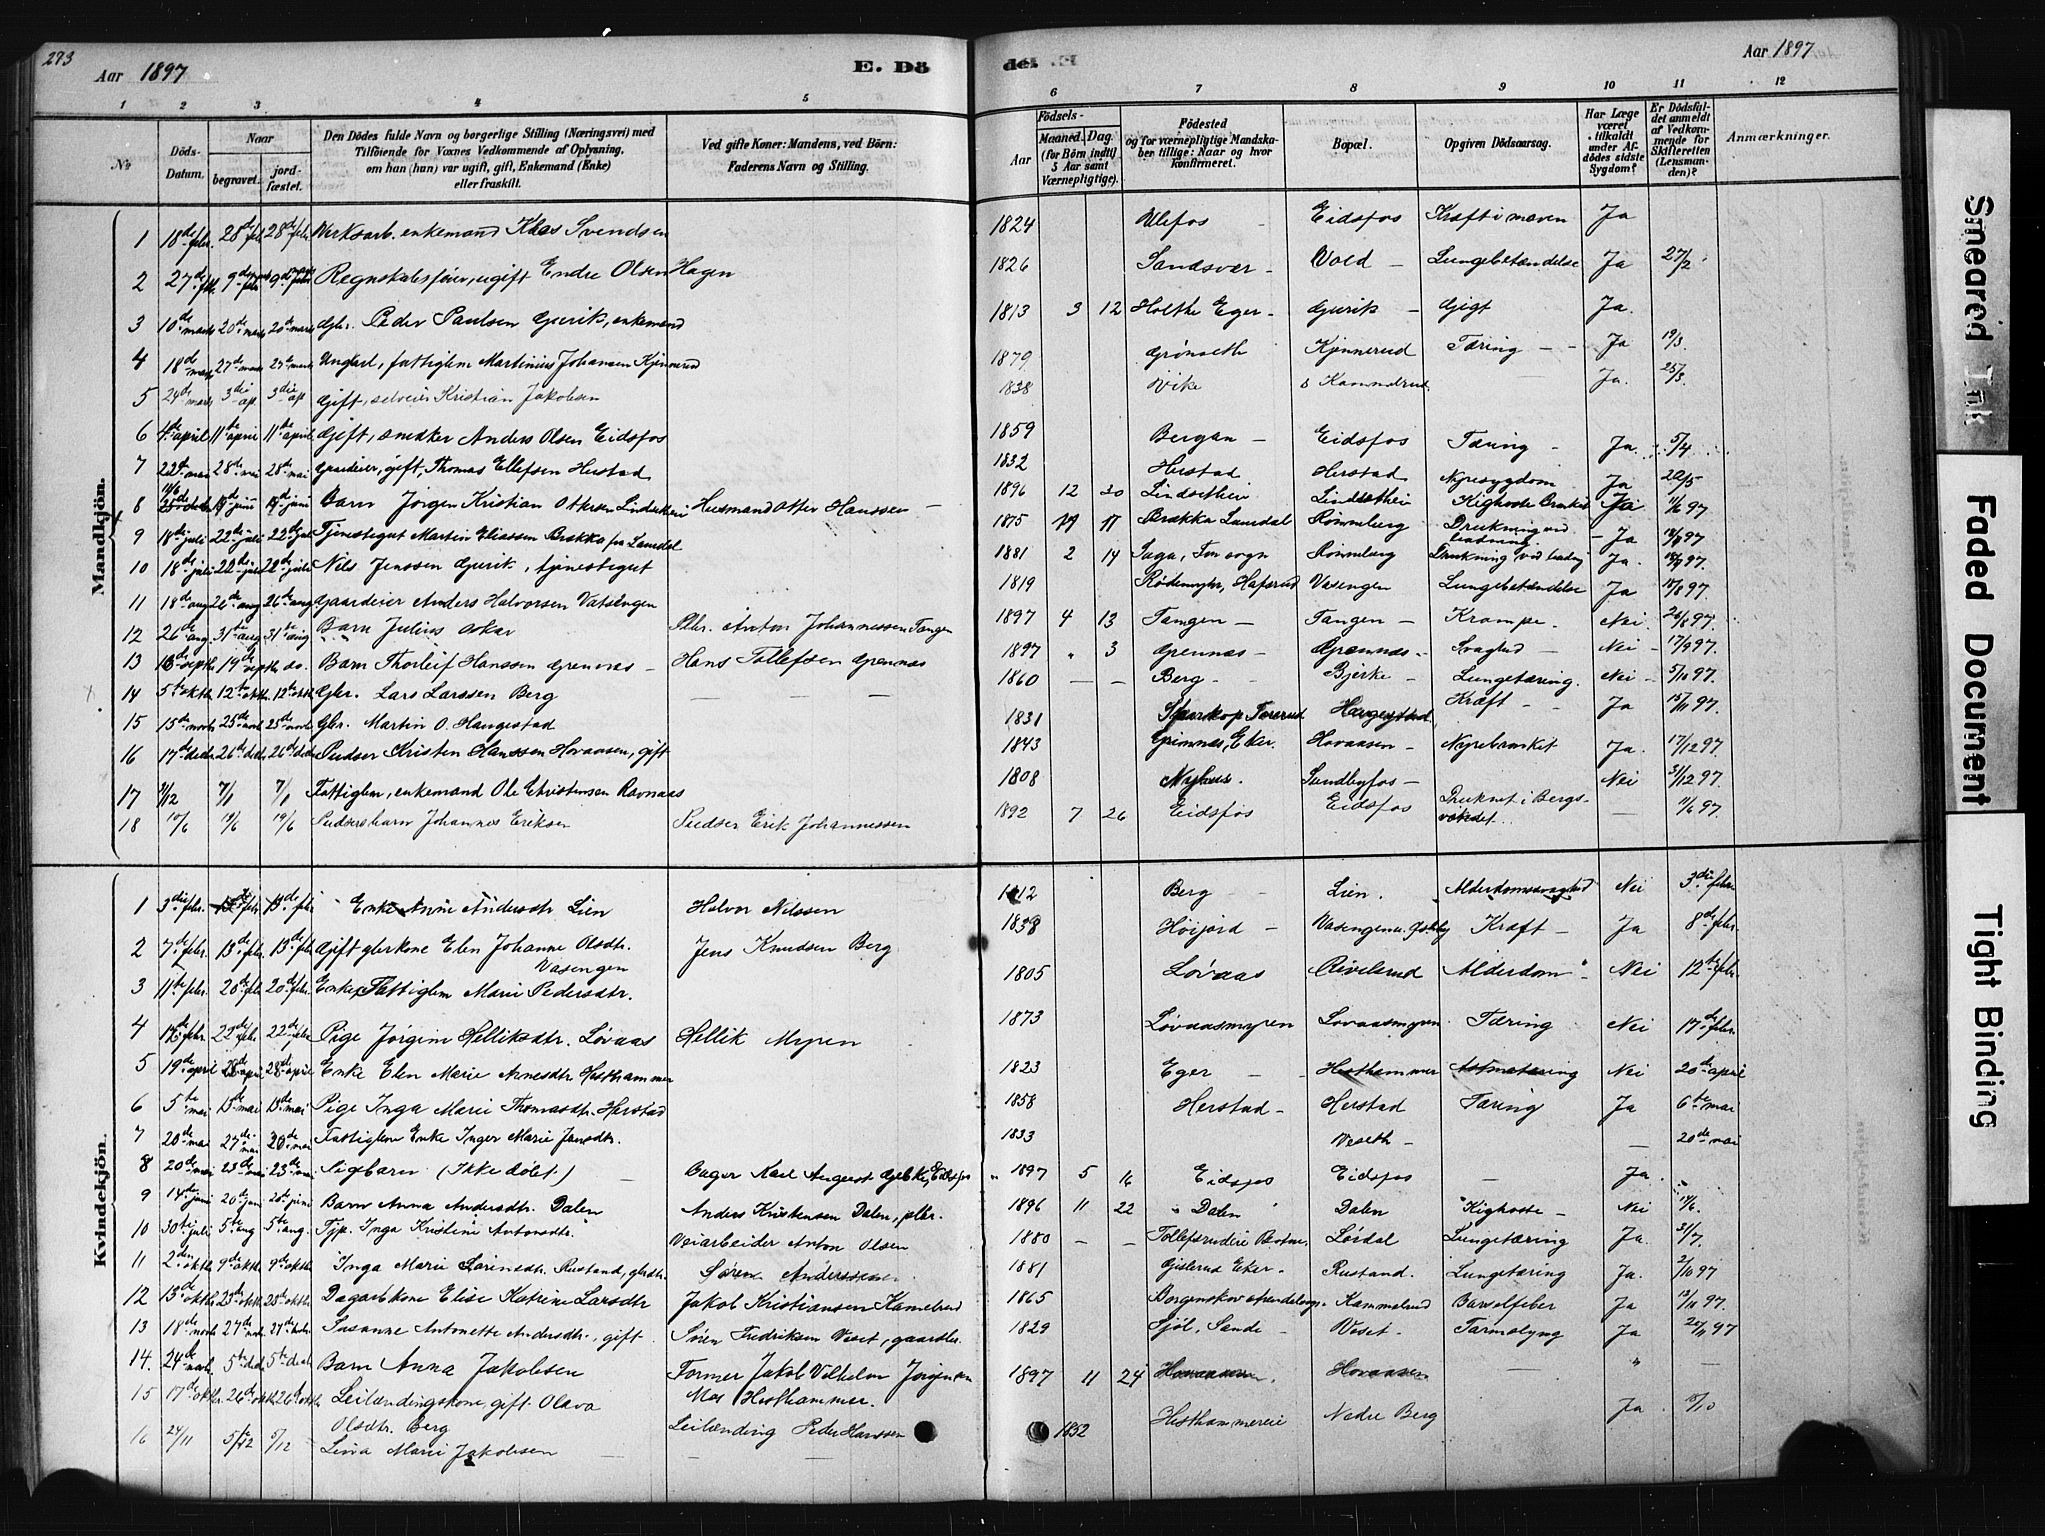 273
Aar 1897
E. Dö
de. E.
Aar 1897
1 2 3 4 5 6 7 8 9 10 11 12
No
Döds-Datum.
Naar
begravet.
jord-fæstet.
Den Dödes fulde Navn og borgerlige Stilling (Næringsvei) med
Tilföiende for Voxnes Vedkommende af Oplysning,
om han (hun) var ugift, gift, Enkemand (Enke)
eller fraskilt.
Ved gifte Koner: Mandens, ved Börn:
Faderens Navn og Stilling.
Födsels-
Aar
Maaned. Dag.
(for Börn indtil
5 Aar samt
Værnepligtige).
Födested
og for værnepligtige Mandska-
ber tillige: Naar og hvor
konfirmeret.
Bopæl.
Opgiven Dödsaarsag.
Har Læge
været
tilkaldt
under Af-
dödes sidste
Sygdom?
Er Dödsfal-
det anmeldt
af Vedkom-
mende for
Skifteretten
(Lensman-
den)?
Anmærkninger.
Mandkjön.
1 18de febr. 28de febr 28de febr Verksarb. enkemand Klas Svendsen 1824 Ulefos Eidsfos Kræft i maven Ja
2 27de feb. 9de 9de Regnskabsfører, ugift Endre Olsen Hagen 1826 Sandsvær Vold Lungebetændelse Ja 27/2
3 10de marts 20de marts 20de marts Gbr. Peder Paulsen Gjerik, enkemand 1813 3 12 Holthe Eger Gjerik Gigt Ja.
4 18de mars 27de mars 27de mars Ungkarl, fattiglem Martinius Johansen Kjinnerud 1879 Grønseth Kjennerud Tæring Ja 19/3
5 24de marts 3die ap 3die ap Gift, selveier Kristian Jakobsen 1838 Vike Kammelrud Ja. 25/3
6 4de april 11te april 11te april Gift, snedker Anders Olsen Eidsfos 1859 Bergan Eidsfos Tæring Ja 5/4
7 22de mai 28de mai 28de mai Gaardeier, gift, Thomas Ellefsen Herstad 1832 Herstad Herstad Nyresygdom Ja 22/5
8 19de juni 19de juni Barn Jörgen Kristian Ottersen Lindsethei Husmand Otter Hanssen 1896 12 30 Lindsethei Lindsethei Kighoste Ja 11/6 97
9 18de juli 22de juli 22de juli Tjenestegut Martin Eliassen Brækka fra Laurdal 1875 11 Brækka Laurdal Rømmberg Drukning ved badning Ja
10 18de juli 22de juli 22de juli Nils Jenssen Gjerik, tjenestegut 1881 2 14 Saga, Fon sogn Rømmberg Drukning ved badn. Ja.
11 18de aug 26de aug 26de aug Gaardeier Anders Halvorsen Vatsengen 1819 Rødemyhr, Hafsrud Vasengen Lungebetændelse Ja 18/8 97.
12 26de aug 31te aug 31te aug Barn Julius Oskar Pbr. Anton Johannessen Tangen 1897 4 13 Tangen Tangen Krampe. Nei 26/8 97.
13 16de septb 19de septb do. Barn Thorleif Hanssen Grennæs Hans Tollefsen Grennæs 1897 " 3 Grennæs Grennæs Svaghed Nei 17/9 97.
14 5te oktb. 12te oktb. 12te oktb. Gbr. Lars Larssen Berg 1860 Berg Bjerke Lungetæring. Nei 5/10 97.
15 15de novb 25de novb 25de novb Gbr. Martin O. Haugestad 1831 Haugestad. Kræft Ja 15/11 97.
16 17de decbr 26de decb 26de decb Pudser Kristen Hanssen Hovaasen, gift 1843 Grimnæs, Eker. Hovaasen Nyrebrusket Ja. 17/12 97.
17 31/12 7/1 7/1 Fattiglem, enkemand Ole Christensen Ravnaas 1808 Nyhus. Sundbyfos Nei 31/12 97.
18 10/6 19/6 19/6 Pudsersbarn Johannes Eriksen Pudser Erik Johannessen 1892 7 26 Eidsfos Eidsfos Druknet i Bergsvandet 11/6 97.
Kvindekjön.
1 3die febr. 13de febr 13de febr Enke Anne Andersdtr Lien Halvor Nilssen 1812 Berg Lien. Alderdomssvaghed Nei 3die febr.
2 7de febr. 13de febr. 13de febr. Gift gbrkone Elen Johanne Olsdtr. Vasengen Jens Knudsen Berg 1838 Höijord Vasengen Kræft Ja 8de febr.
3 11te febr. 20de febr 20de febr. Enke, Fattiglem Marie Pedersdtr. 1805 Lövaas Alderdom Nei 12te febr.
4 17de febr. 22de febr 22de febr Pige Jörgine Helliksdtr. Løvaas Hellik Myren 1873 Løvaasmyren Lovaasmyren Tæring Nei 17de febr.
5 19de april 28de april 28de april Enke Elen Marie Arnesdtr Hesthammer 1823 Eger Hesthammer Astmatæring Nei 20de april
6 5te mai 13de mai 13de mai Pige Inga Marie Thomasdtr. Herstad 1858 Herstad Herstad Tæring Ja 6te mai
7 20de mai 27de mai 20de mai Fattiglem Enke Inger Marie Jensdtr. 1833 Veseth 20de mai
8 20de mai 23de mai 23de mai Pigebarn (Ikke døbt) Bager Karl August Gjelke, Eidsfos 1897 5 16 Eidsfos Eidsfos Ja
9 14de juni 20de juni 20de juni Barn Anna Andersdtr. Dalen Anders Kristensen Dalen, pbr. 1896 11 22 Dalen Dalen Kighoste Nei 14/6.
10 30te juli 5te aug 5te aug. Tjp. Inga Kristine Antonsdtr. Veiarbeider Anton Olsen 1880 Lørdal Lungetæring Ja 31/7.
11 2den oktb 9de oktb 9de oktb. Inga Marie Sörensdtr. Rustand, gbrdtr. Søren Anderssen 1881 Gjislerud Eker. Rustand. Lungetæring Ja. 2/10 97
12 13de oktb. 23de oktb. 23de oktb. Dagarb.kone Elise Katrine Larsdtr Jakob Kristiansen Kamelrud 1865 Kammelrud Barselfeber Ja 13/10 97.
13 18de novb 27de novb 27de novb. Susanne Antonette Andersdtr., gift Sören Fredriksen Veset, gaardbr. 1829 Sjöl, Sande Veset Tarmslyng Ja 20/11 97
14. 24de novb. 5te decb 5te decb Barn Anna Jakobsen Former Jakob Vilhelm Jörgensen 1897 11 24 Hovaasen. Hovaasen "
15 17de oktbr. 26de oktb 26de oktb. Leilændingskone, gift Olava Olsdtr. Berg Mos Hesthammer. Leilænding Peder Hanssen 1852 Hesthammereie Nedre Berg Ja 18/10
16 24/11 5/12 5/12 Lina Marie Jakobsen
Smeared Ink
Faded Document
Tight Binding